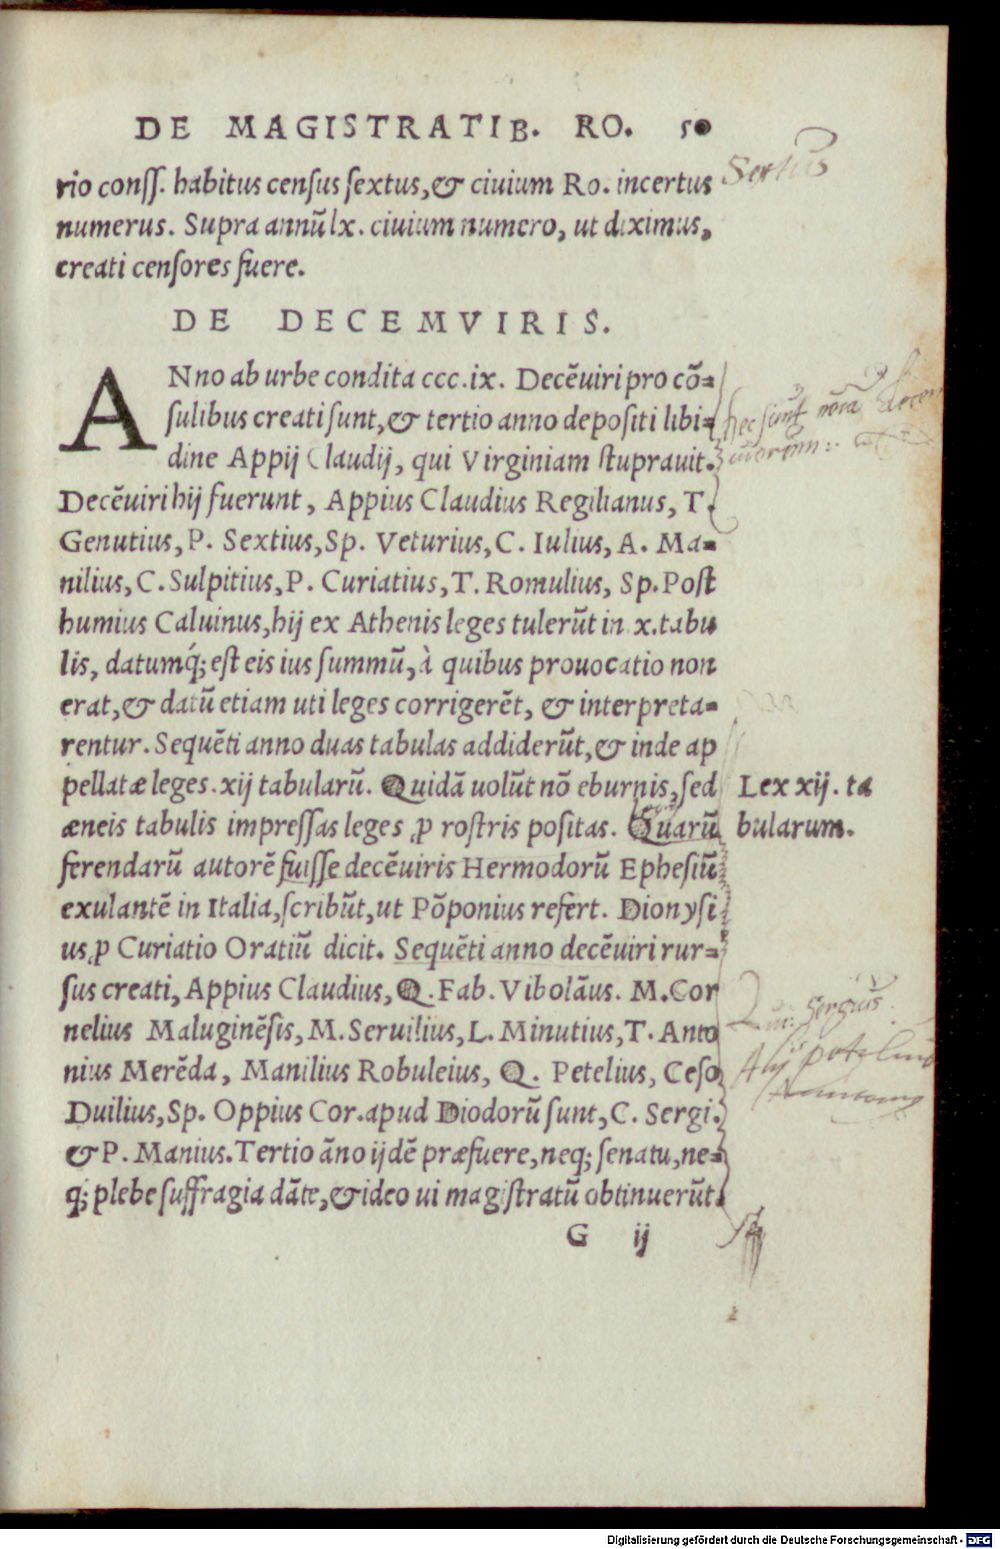 DE MAGISTRATIB. RO. 50
rio conſſ. habitus cenſus ſextus, & ciuium Ro. incertus
Sextus
numerus. Supra annū lx. ciuium numero, ut diximus,
creati cenſores fuere.
DE DECEMVIRIS.
ANno ab urbe condita ccc.ix. Decēuiri pro cō=
ſulibus creati ſunt, & tertio anno depoſiti libi=
hec sunt
dine Appij Claudij, qui Virginiam ſtuprauit.
Decēuiri hij fuerunt, Appius Claudius Regilianus, T.
Genutius, P. Sextius, Sp. Veturius, C. Iulius, A. Ma=
nilius, C. Sulpitius, P. Curiatius, T. Romulius, Sp. Poſt
humius Caluinus, hij ex Athenis leges tulerūt in x. tabu
lis, datumq́; eſt eis ius ſummū, à quibus prouocatio non
erat, & datū etiam uti leges corrigerēt, & interpreta=
rentur. Sequēti anno duas tabulas addiderūt, & inde ap
pellatæ leges .xij tabularū. Quidā uolūt nō eburnis, ſed
Lex xij. ta
æneis tabulis impreſſas leges ꝓ roſtris poſitas. Quarū
bularum.
ferendarū autorē fuiſſe decēuiris Hermodorū Epheſiū
exulantē in Italia, ſcribūt, ut Pōponius refert. Dionyſi
us, ꝓ Curiatio Oratiū dicit. Sequēti anno decēuiri rur=
ſus creati, Appius Claudius, Q. Fab. Vibolāus. M. Cor
Sergius
nelius Maluginēſis, M. Seruilius, L. Minutius, T. Anto
nius Merēda, Manilius Robuleius, Q. Petelius, Ceſo
Duilius, Sp. Oppius Cor. apud Diodorū ſunt, C. Sergi.
& P. Manius. Tertio āno ijdē præfuere, neq; ſenatu, ne=
q; plebe ſuffragia dāte, & ideo ui magiſtratū obtinuerūt.
G ij
Digitalisierung gefördert durch die Deutsche Forschungsgemeinschaft - DFG